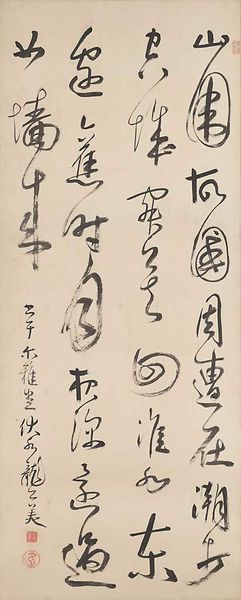 山圍故國周遭在潮打
空城寂寞回淮水東
邊舊時月夜深還過
女墻來
書于尓雅堂伏水龍公美